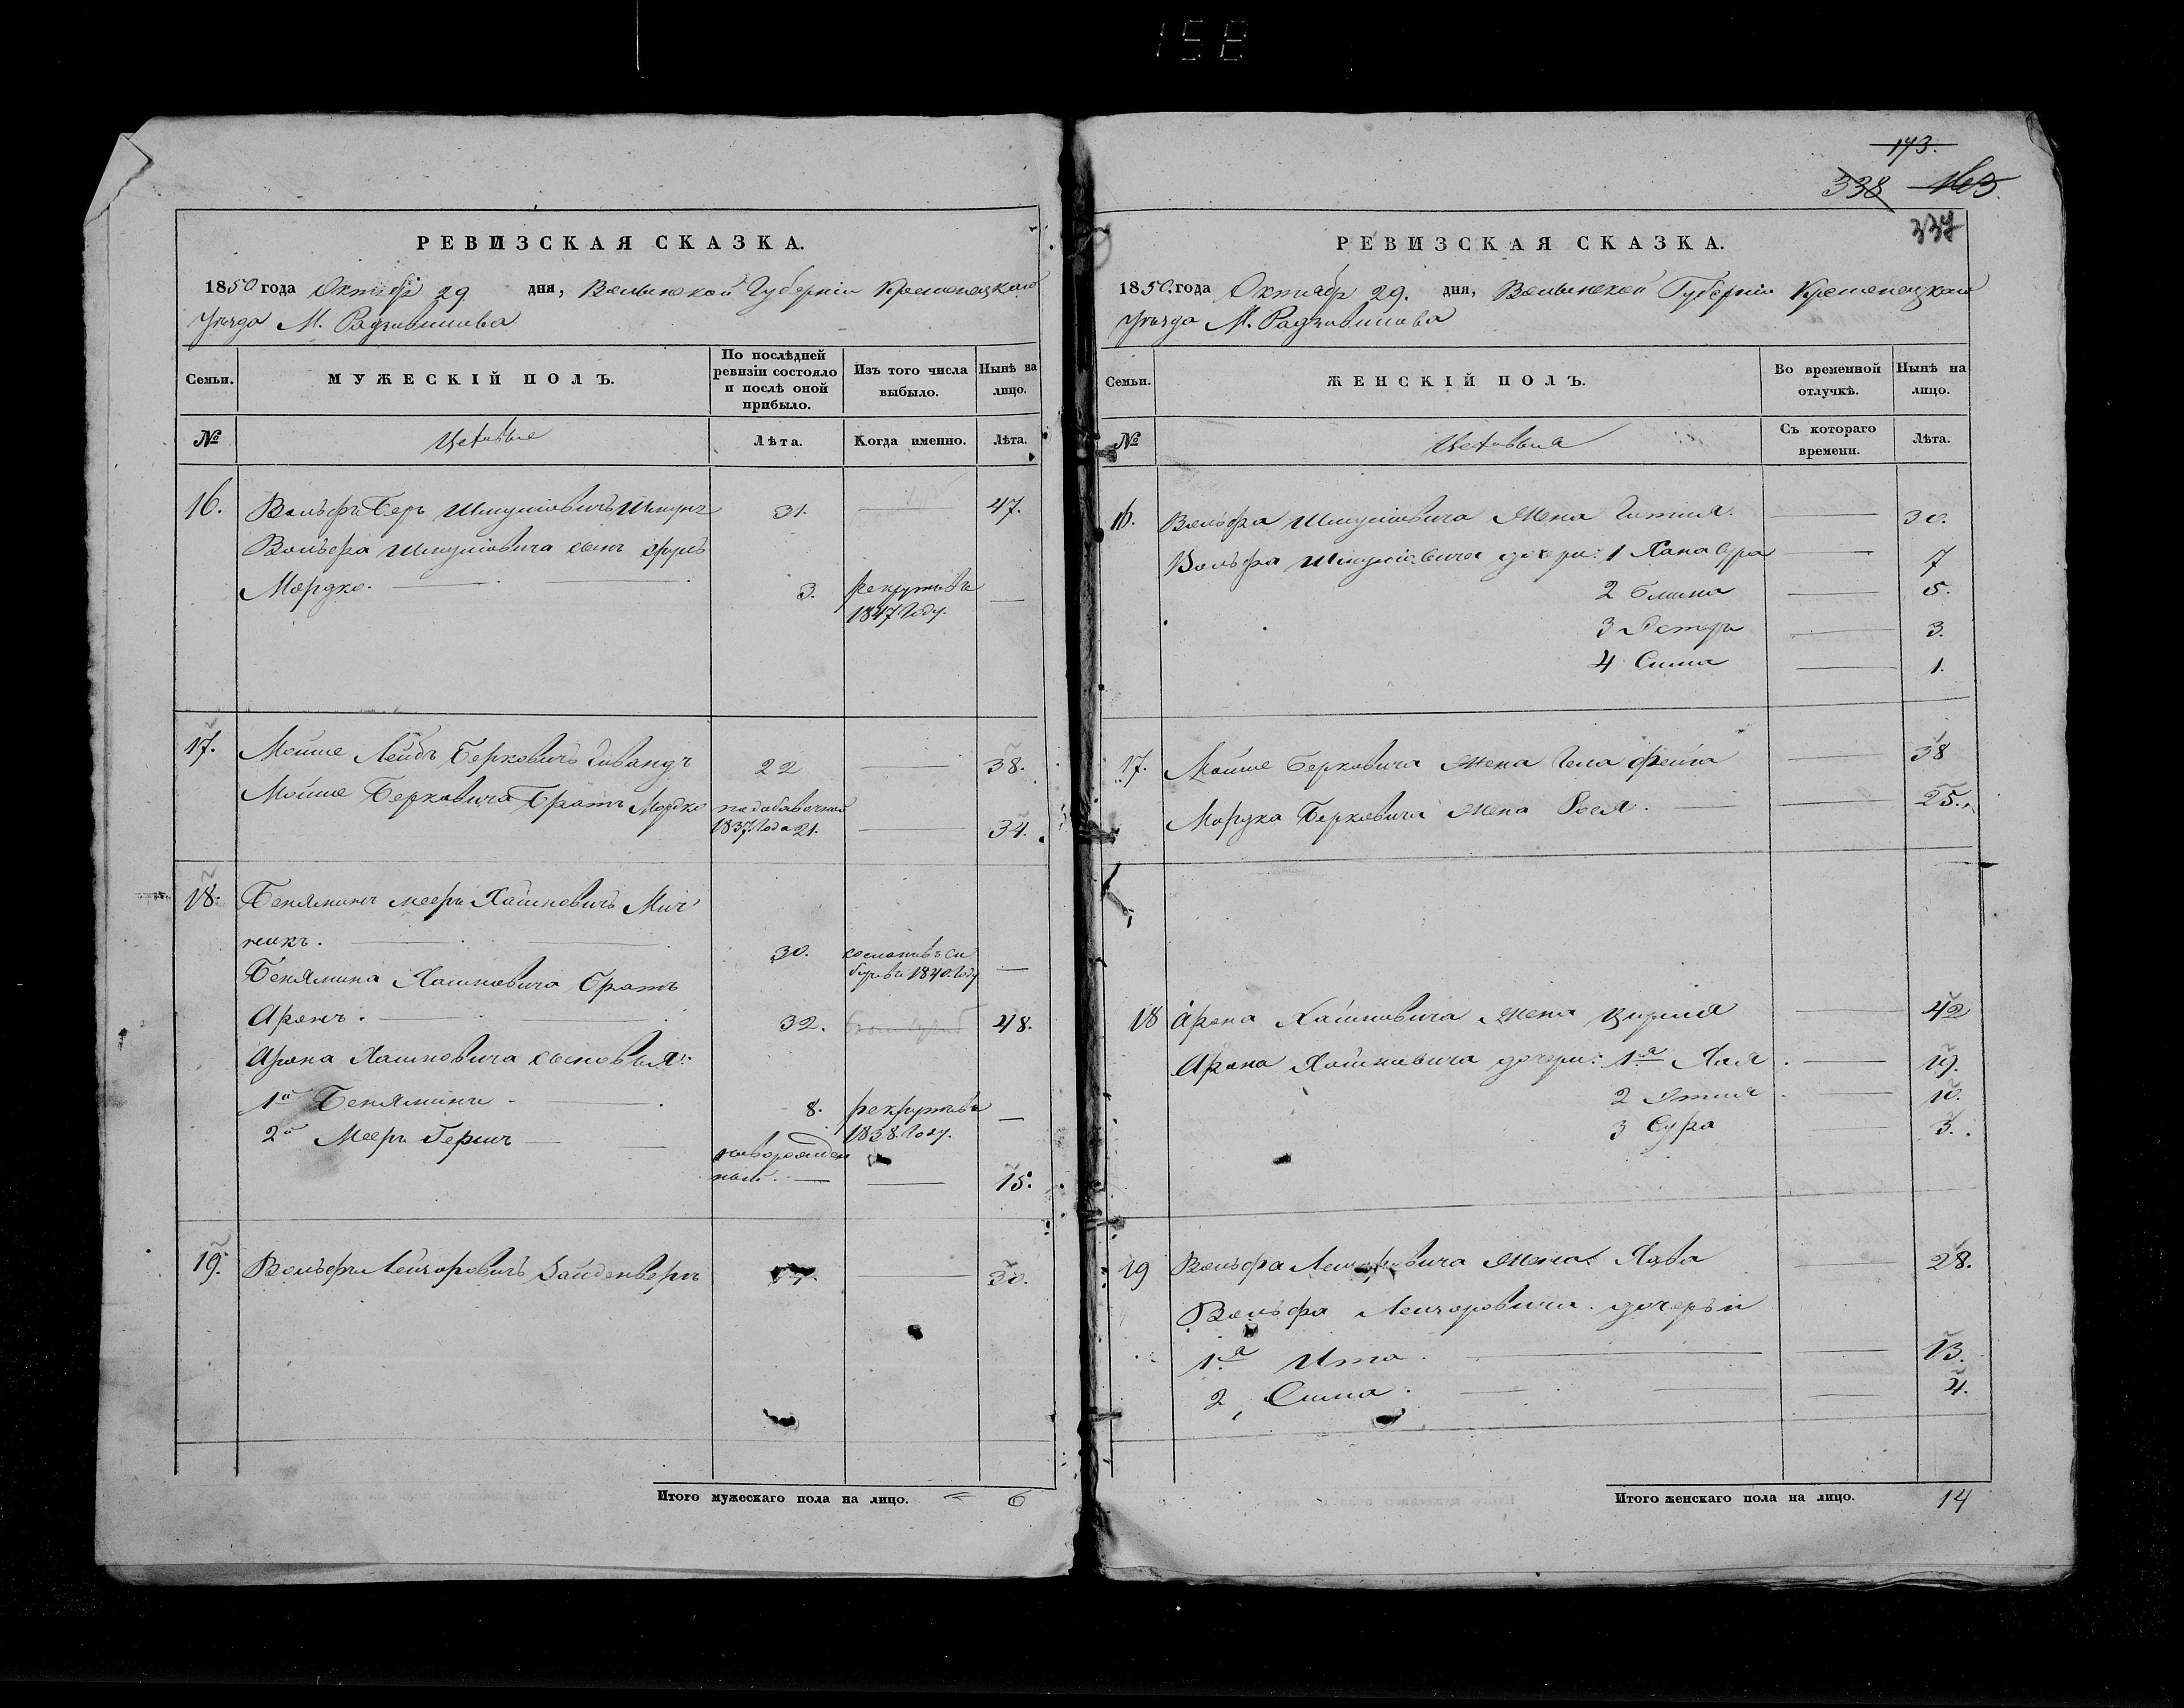 158
РЕВИЗСКАЯ СКАЗКА.
1850 года Октября 29 дня, Волынской Губерніи Кременецкаго
Уѣзда М. Радзивилова
Семьи.
МУЖЕСКІЙ ПОЛЪ.
По послѣдней ревизіи состояло и послѣ оной прибыло.
Изъ того числа выбыло.
Нынѣ на лицо.
№
Лѣта.
Когда именно.
Лѣта.
16. Вольфъ Беръ Шмулiовичъ 31. 47.
Вольфа Шмулiовича сынъ
Мордко. 3. рекрутъ въ
1847 Году.
17. Мойше Лейбъ Берковичъ 22 38.
Мойше Берковича Братъ Мордко по добавочной
1837 Года 21. 34.
18. Беняминъ Мееръ Хаимовичъ Мич
никъ. 30. сосланъ въ Си
бирь въ 1840 Году
Бенямина Хаимовича Братъ
Аронъ. 32. 48.
Арона Хаимовича сыновья:
1й Беняминъ 8. рекрутъ въ
1838 Году.
2й Мееръ Гершъ новорожден
ный. 15.
19. Вольфъ Лейзоровичъ Зайденвергъ 30.
Итого мужескаго пола на лицо. 6
173.
338 163
337
РЕВИЗСКАЯ СКАЗКА.
1850 года Октября 29. дня, Волынской Губерніи Кременецкаго
Уѣзда М. Радзивилова
Семьи.
ЖЕНСКІЙ ПОЛЪ.
Во временной отлучкѣ.
Нынѣ на лицо.
№
Съ котораго времени.
Лѣта.
16. Вольфа Шмулiовича Жена Гитля. 30.
Вольфа Шмулiовича дочери: 1 Хана Сура 7
2 Блима 5.
3 Естеръ 3.
4 Сима 1.
17. Мойше Берковича Жена Гела Фейга 38
Мордка Берковича Жена Рося. 25.
18 Арона Хаимовича Жена Цирля 42
Арона Хаимовича дочери: 1а Хая 19.
2 Этля 10.
3 Сура 3.
19 Вольфа Лейзоровича Жена Хава 28.
Вольфа Лейзоровича дочерьи
1а Ита. 13.
2, Сима. 4.
Итого женскаго пола на лицо. 14